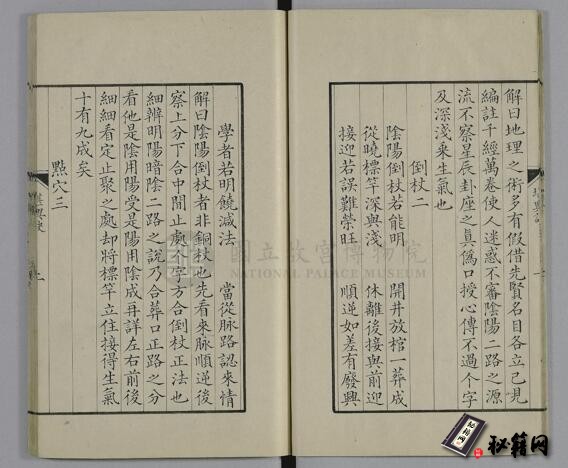 解曰地理之術多有假借先賢名目各立己見
編註千經萬卷使人迷惑不審陰陽二路之源
流不察星辰卦座之真偽口授心傳不過个字
及深淺乘生氣也
倒杖二
陰陽倒杖若能明　開井放棺一葬成
從曉標竿深與淺　休離後接與前迎
接迎若誤難榮旺　順逆如差有廢興
學者若明饒減法　當從脈路認來情
解曰陰陽倒杖者非銅杖也先看來脈順逆後
察上分下合中間止處个字方合倒杖正法也
細辨明陽暗陰二路之說乃合葬口正路之分
看他是陰用陽受是陽用陰成再詳左右前後
細細看定止聚之處却將標竿立住接得生氣
十有九成矣
點穴三
國立故宮博物院
NATIONAL PALACE MUSEUM
秘籍网